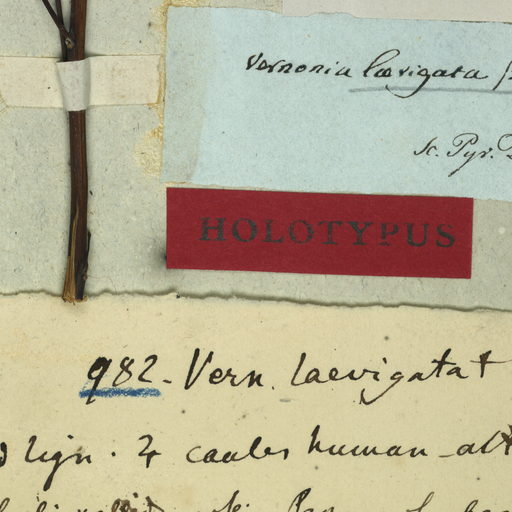 Vernonia lævigata
sc. Pyr.
HOLOTYPUS
982 - Vern. laevigata †
lign. ♃ caules human - alt